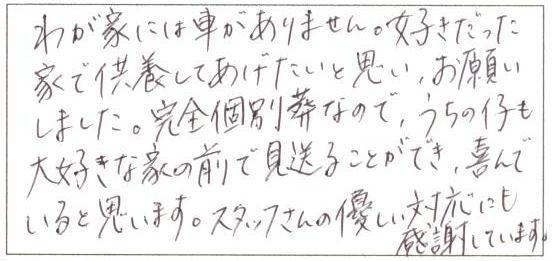 わが家には車がありません。好きだった
家で供養してあげたいと思い、お願い
しました。完全個別葬なので、うちの仔も
大好きな家の前で見送ることができ、喜んで
いると思います。スタッフさんの優しい対応にも
感謝しています。